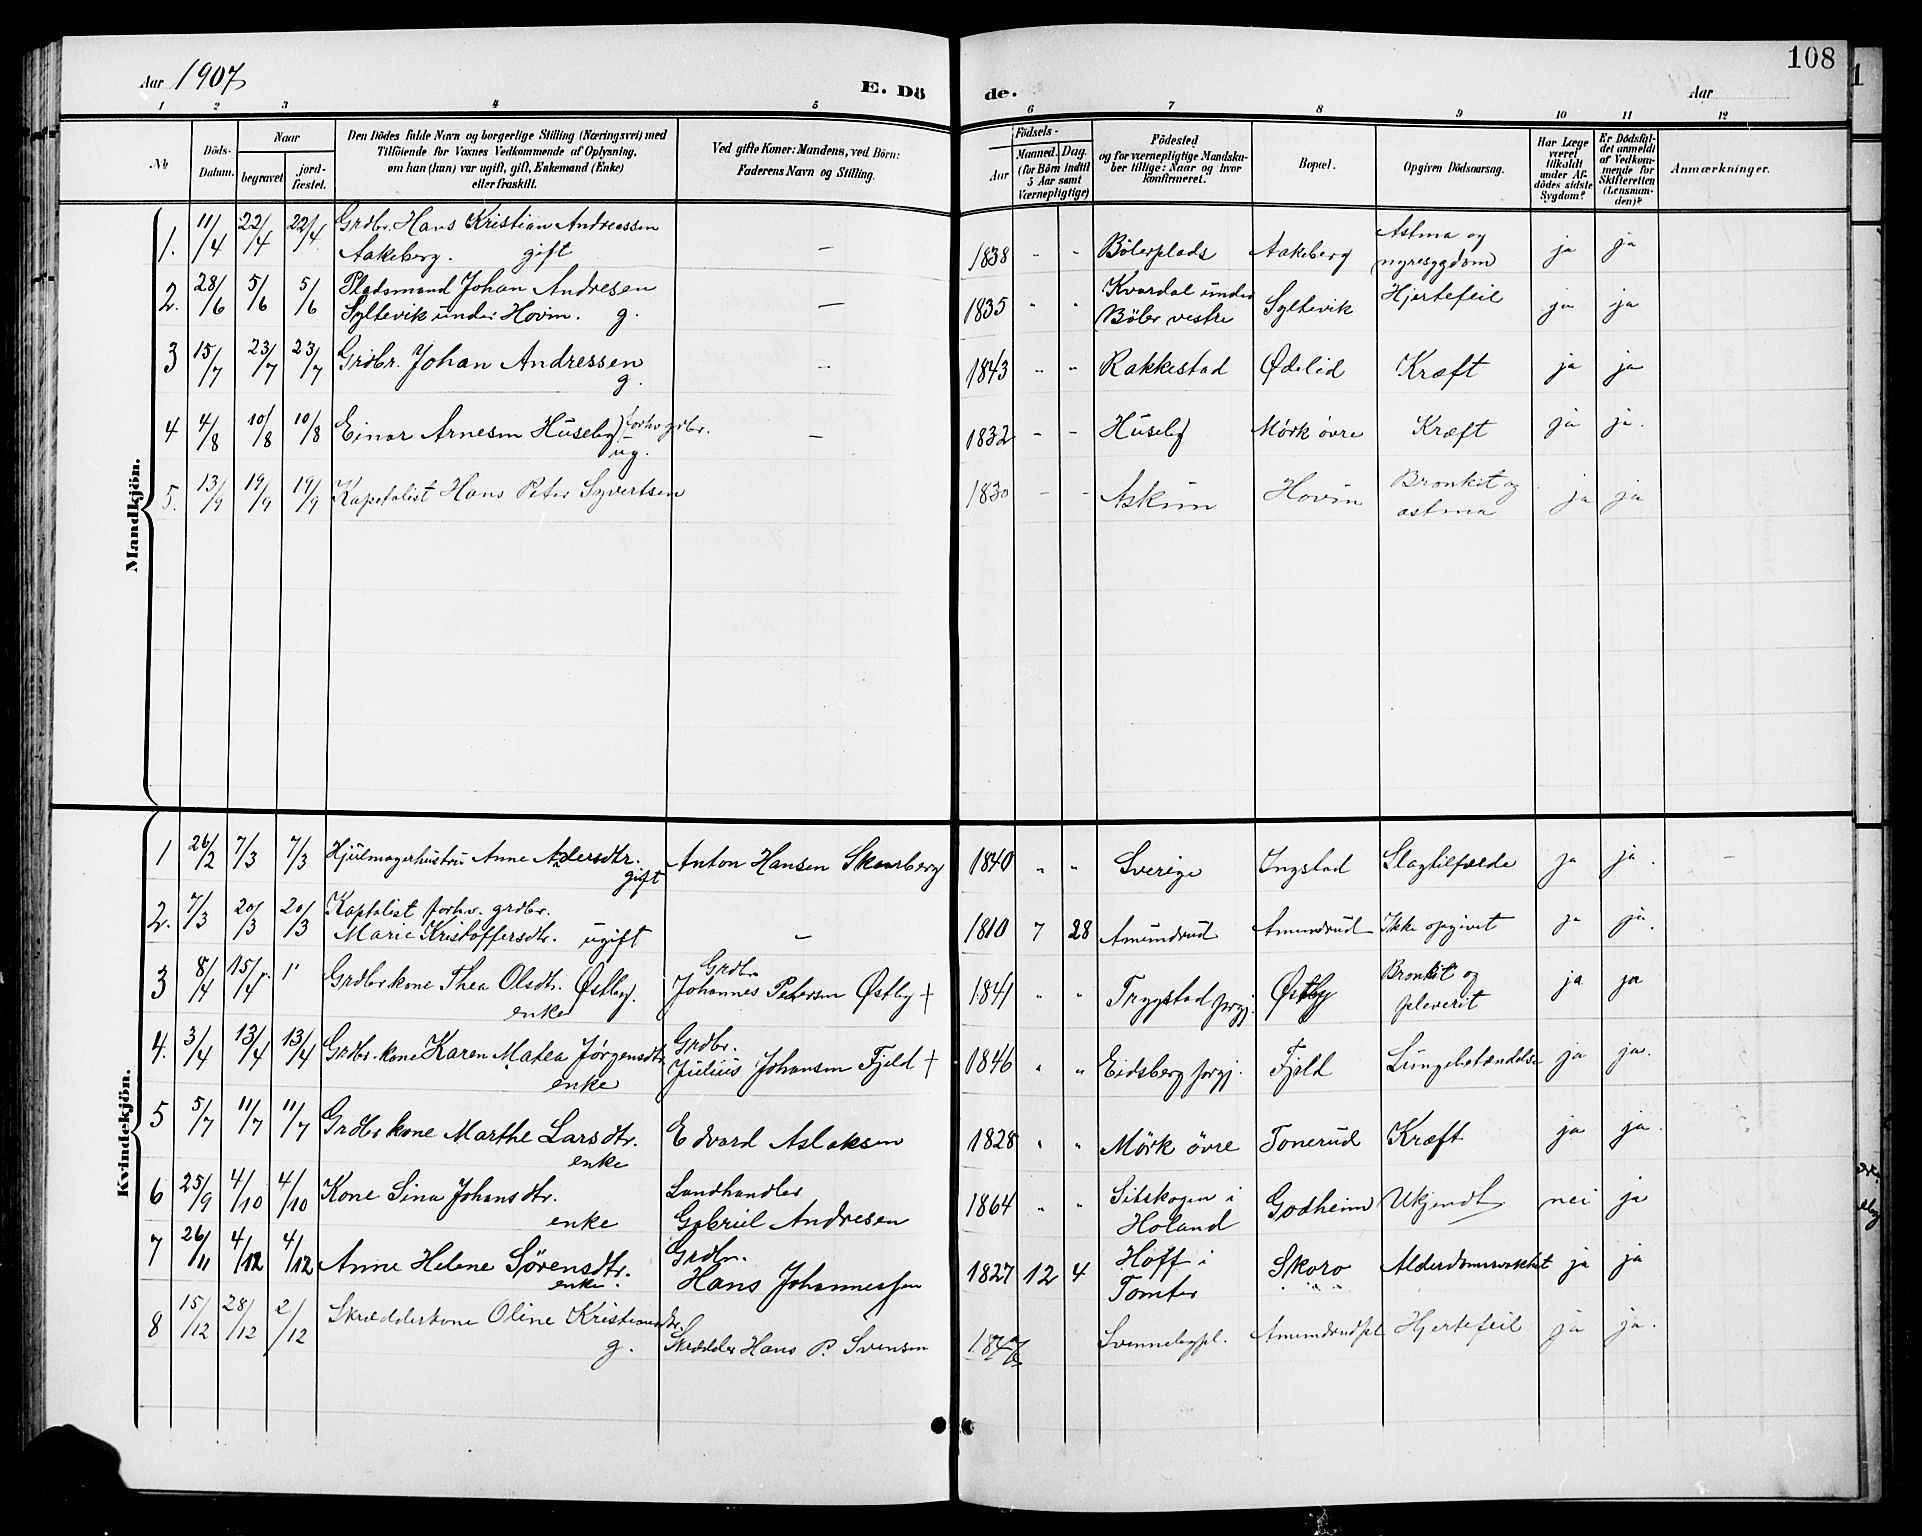 108
Aar 1907
E. Dö
de.
Aar
1 2 3 4 5 6 7 8 9 10 11 12
No
Döds-Datum.
Naar
begravet
jord-fæstet.
Den Dödes fulde Navn og borgerlige Stilling (Næringsvei) med
Tilföiende for Voxnes Vedkommende af Oplysning,
om han (hun) var ugift, gift, Enkemand (Enke)
eller fraskilt.
Ved gifte Koner: Mandens, ved Börn:
Faderens Navn og Stilling.
Födsels-
Aar
Maaned. Dag.
(for Börn indtil
5 Aar samt
Værnepligtige)
Födested
og for værnepligtige Mandska-
ber tillige: Naar og hvor
konfirmeret.
Bopæl.
Opgiven Dödsaarsag.
Har Læge
været
tilkaldt
under Af-
dödes sidste
Sygdom?
Er Dödsfal-
det anmeldt
af Vedkom-
mende for
Skifteretten
(Lensman-
den)?
Anmærkninger.
Mandkjön.
1. 11/4 22/4 22/4 Grdbr. Hans Kristian Andreassen – 1838 " " Bölerplads Aakeberg Astma og ja ja
Aakeberg. gift nyresygdom
2. 28/6 5/6 5/6 Pladsmand Johan Andresen – 1835 " " Kvardal under Syltevik Hjertefeil ja ja
Syltevik under Hovin. g. Böler vestre
3 15/7 23/7 23/7 Grdbr. Johan Andressen – 1843 " " Rakkestad Ødelid Kræft ja ja
g.
4 4/8 10/8 10/8 Einar Arnesen Huseby forhv grdbr. – 1832 – – Huseby Mörk övre Kræft ja ja.
ug.
5. 13/9 19/9 19/9 Kapetalist Hans Peter Syvertsen 1830 – – Askim Hovin Bronkit og ja ja
astma
Kvindekjön.
1 26/2 7/3 7/3 Hjulmagerhustru Anne Andersdtr. Anton Hansen Skaarberg 1840 " " Sverige Ingstad Slagtilfælde ja ja. –
gift
2. 7/3 20/3 20/3 Kaptalist forhv. grdbr. – 1810 7 28 Amundrud Amundrud Ikke opgivet ja ja.
Marie Kristoffersdtr. ugift
3 8/4 15/4 1" Grdbrkone Thea Olsdtr. Østby. Grdbr. 1841 " " Trygstad prgj. Østby Bronkit og ja ja
enke Johannes Petersen Østby † pleverit
4. 3/4 13/4 13/4 Grdbr.kone Karen Matea Jørgensdtr. Grdbr. 1846 " " Eidsberg prgj. Fjeld Lungebetændelse ja ja.
enke Julius Johansen Fjeld †
5 5/7 11/7 11/7 Grdbrkone Marthe Larsdtr. Edvard Aslaksen 1828 " " Mörk övre Tonerud Kræft ja ja.
enke
6 25/9 4/10 4/10 Kone Sina Johansdtr. Landhandler 1864 " " Sitskogen i Godheim Ukjendt nei ja
enke Gabriel Andresen Holand
7 26/11 4/12 4/12 Anne Helene Sørensdtr. Grdbr. 1827 12 4 Hoff i Skoro Alderdomssvakhet ja ja
enke. Hans Johannessen Tomter
8 15/12 28/12 2/12 Skrædderkone Oline Kristiansdtr. Skrædder Hans P. Svensen Svennebypl. Amundrudpl Hjertefeil ja ja.
g.